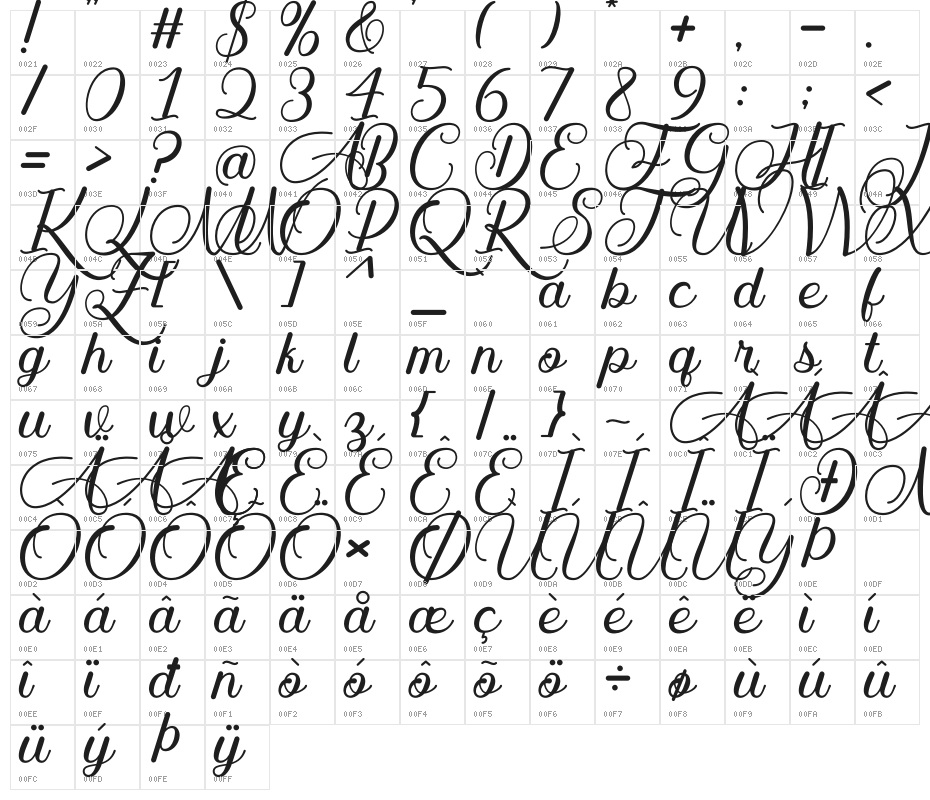 ! " # $ % & ' ( ) * + , - .
0021 0022 0023 0024 0025 0026 0027 0028 0029 002A 002B 002C 002D 002E
/ 0 1 2 3 4 5 6 7 8 9 : ; <
002F 0030 0031 0032 0033 0034 0035 0036 0037 0038 0039 003A 003B 003C
= > ? @ A B C D E F G H I J
003D 003E 003F 0040 0041 0042 0043 0044 0045 0046 0047 0048 0049 004A
K L M N O P Q R S T U V W X
004B 004C 004D 004E 004F 0050 0051 0052 0053 0054 0055 0056 0057 0058
Y Z [ \ ] ^ _ a b c d e f
0059 005A 005B 005C 005D 005E 005F 0060 0061 0062 0063 0064 0065 0066
g h i j k l m n o p q r s t
0067 0068 0069 006A 006B 006C 006D 006E 006F 0070 0071 0072 0073 0074
u v w x y z { | } ~ À Á Â Ã
0075 0076 0077 0078 0079 007A 007B 007C 007D 007E 00C0 00C1 00C2 00C3
Ä Å Æ Ç È É Ê Ë Ì Í Î Ï Ð Ñ
00C4 00C5 00C6 00C7 00C8 00C9 00CA 00CB 00CC 00CD 00CE 00CF 00D0 00D1
Ò Ó Ô Õ Ö × Ø Ù Ú Û Ü Ý Þ
00D2 00D3 00D4 00D5 00D6 00D7 00D8 00D9 00DA 00DB 00DC 00DD 00DE 00DF
à á â ã ä å æ ç è é ê ë ì í
00E0 00E1 00E2 00E3 00E4 00E5 00E6 00E7 00E8 00E9 00EA 00EB 00EC 00ED
î ï đ ñ ò ó ô õ ö ÷ ø ù ú û
00EE 00EF 00F0 00F1 00F2 00F3 00F4 00F5 00F6 00F7 00F8 00F9 00FA 00FB
ü ý þ ÿ
00FC 00FD 00FE 00FF